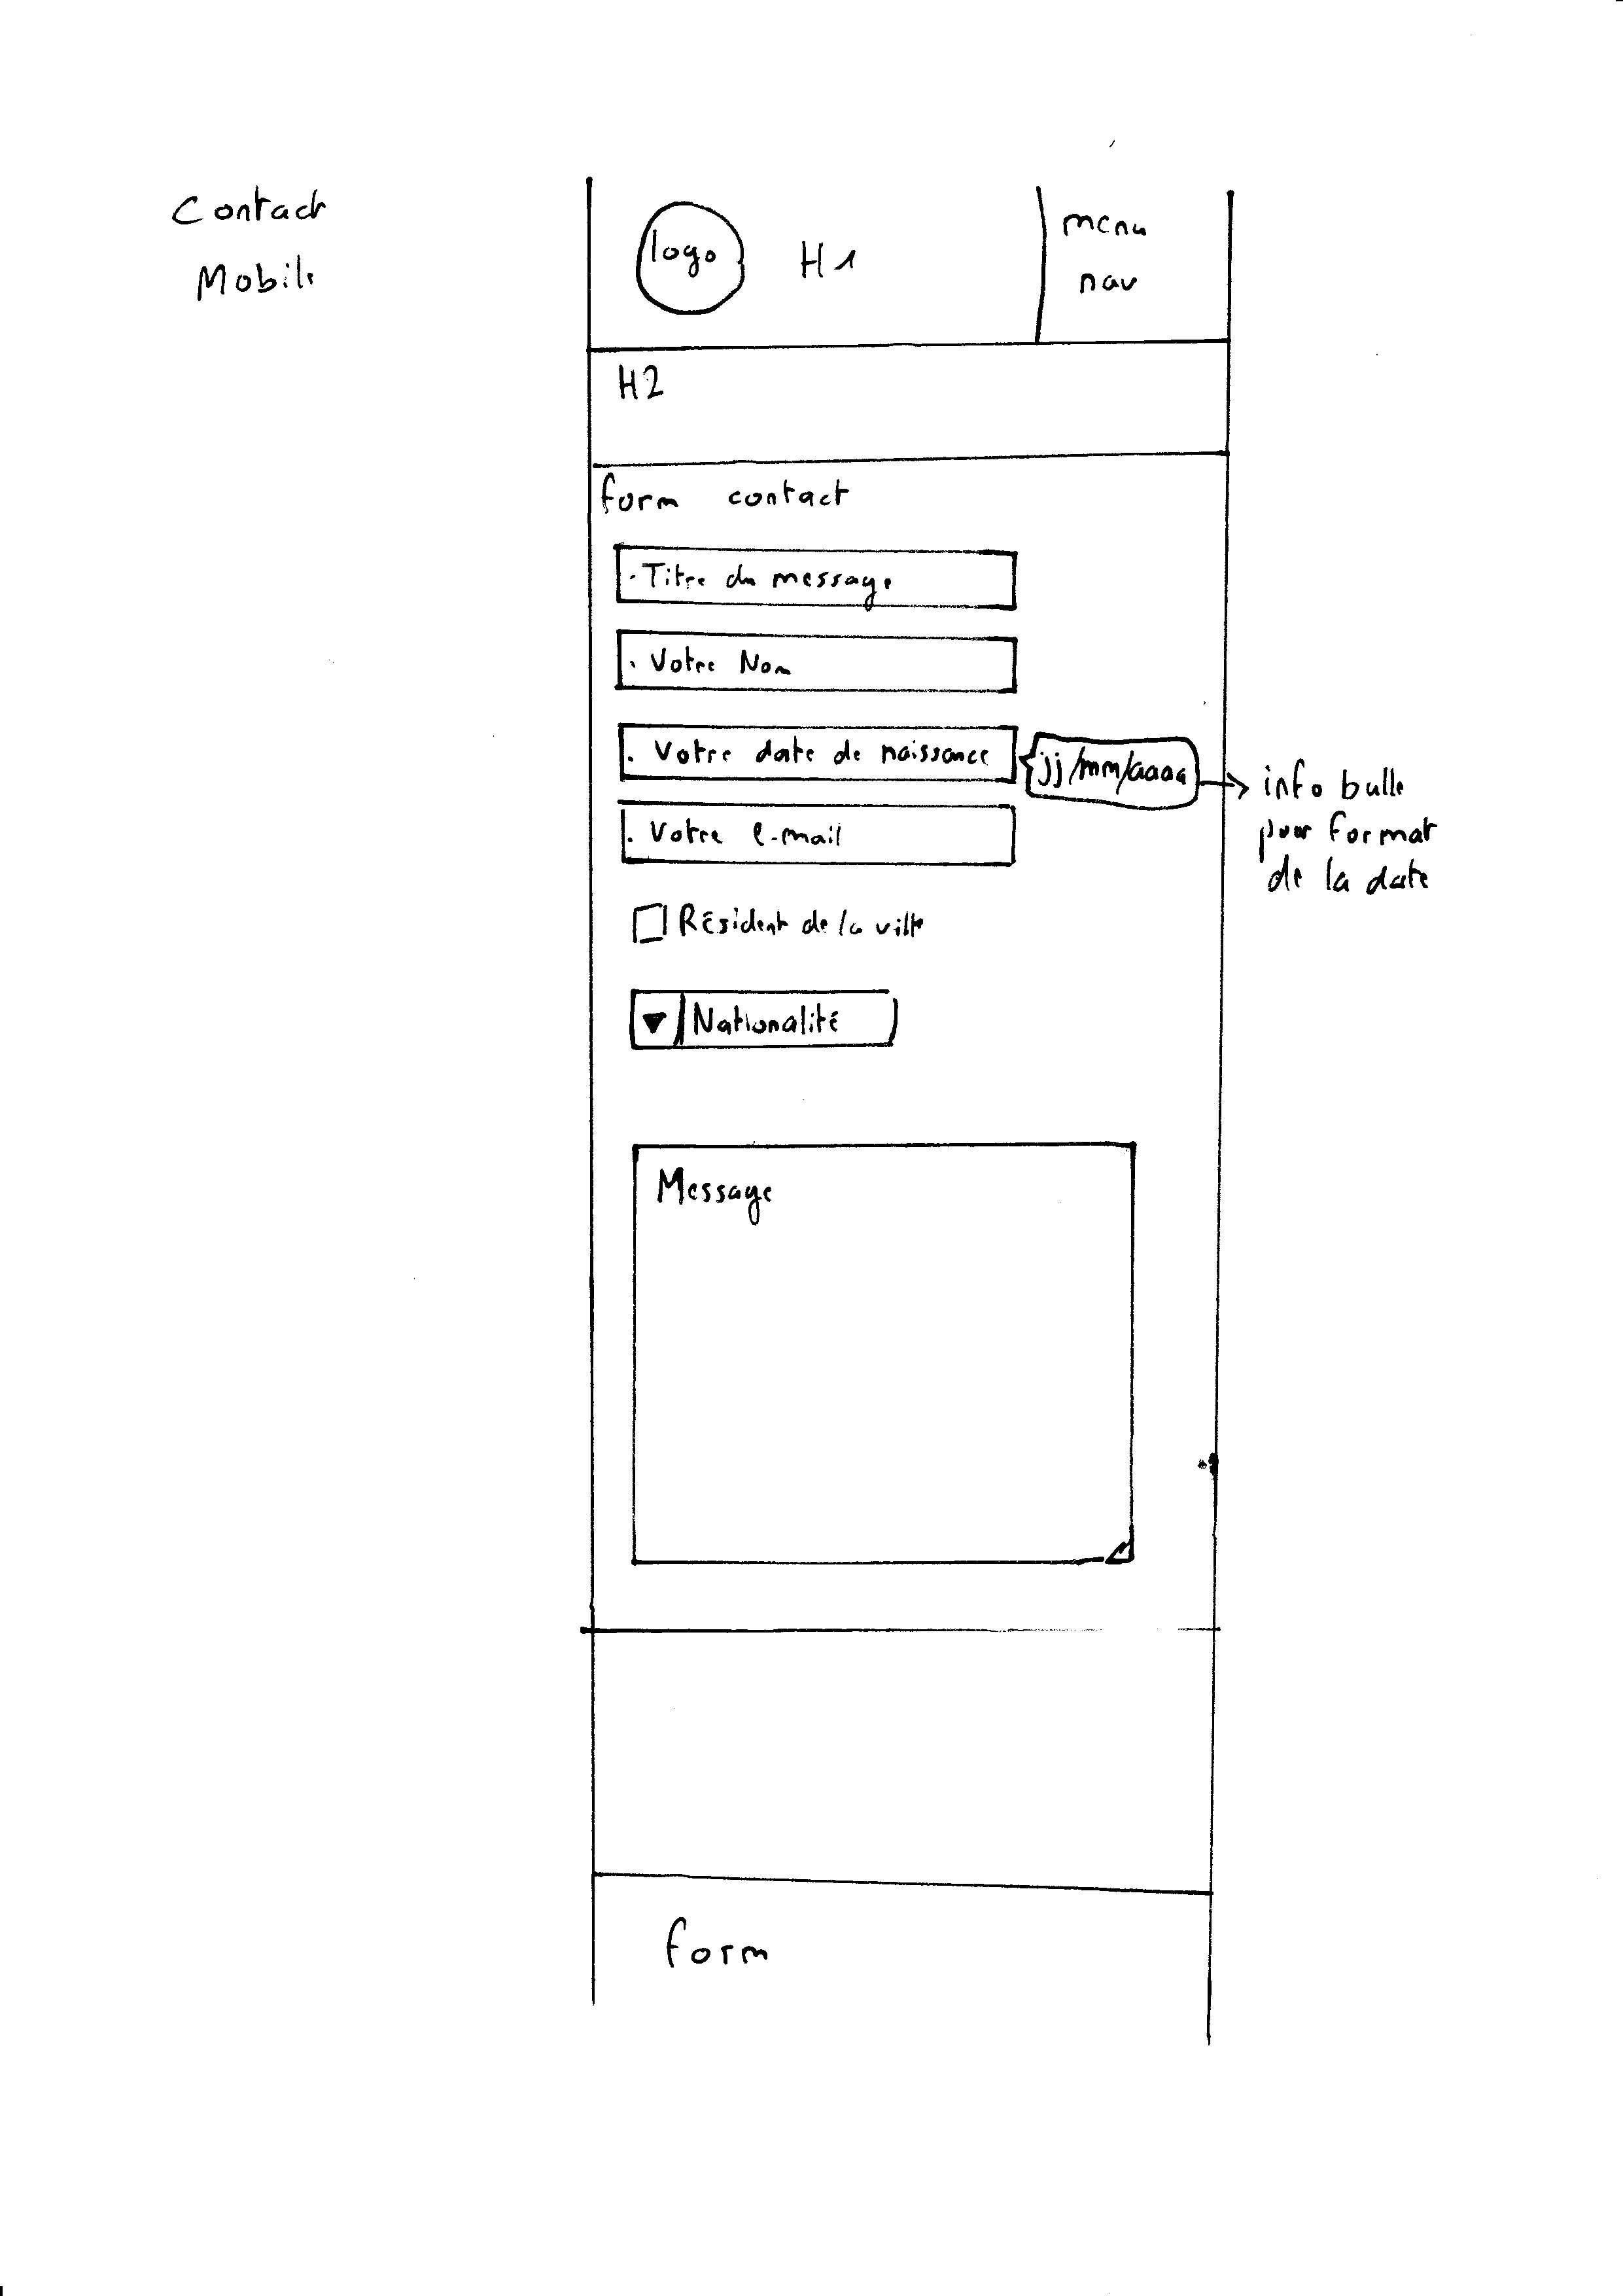 Contact
Mobile
logo
H1
menu
nav
H2
form contact
. Titre du message
. Votre Nom
. Votre date de naissance
jj/mm/aaaa
info bulle
pour format
de la date
. Votre e-mail
Résident de la ville
Nationalité
Message
form